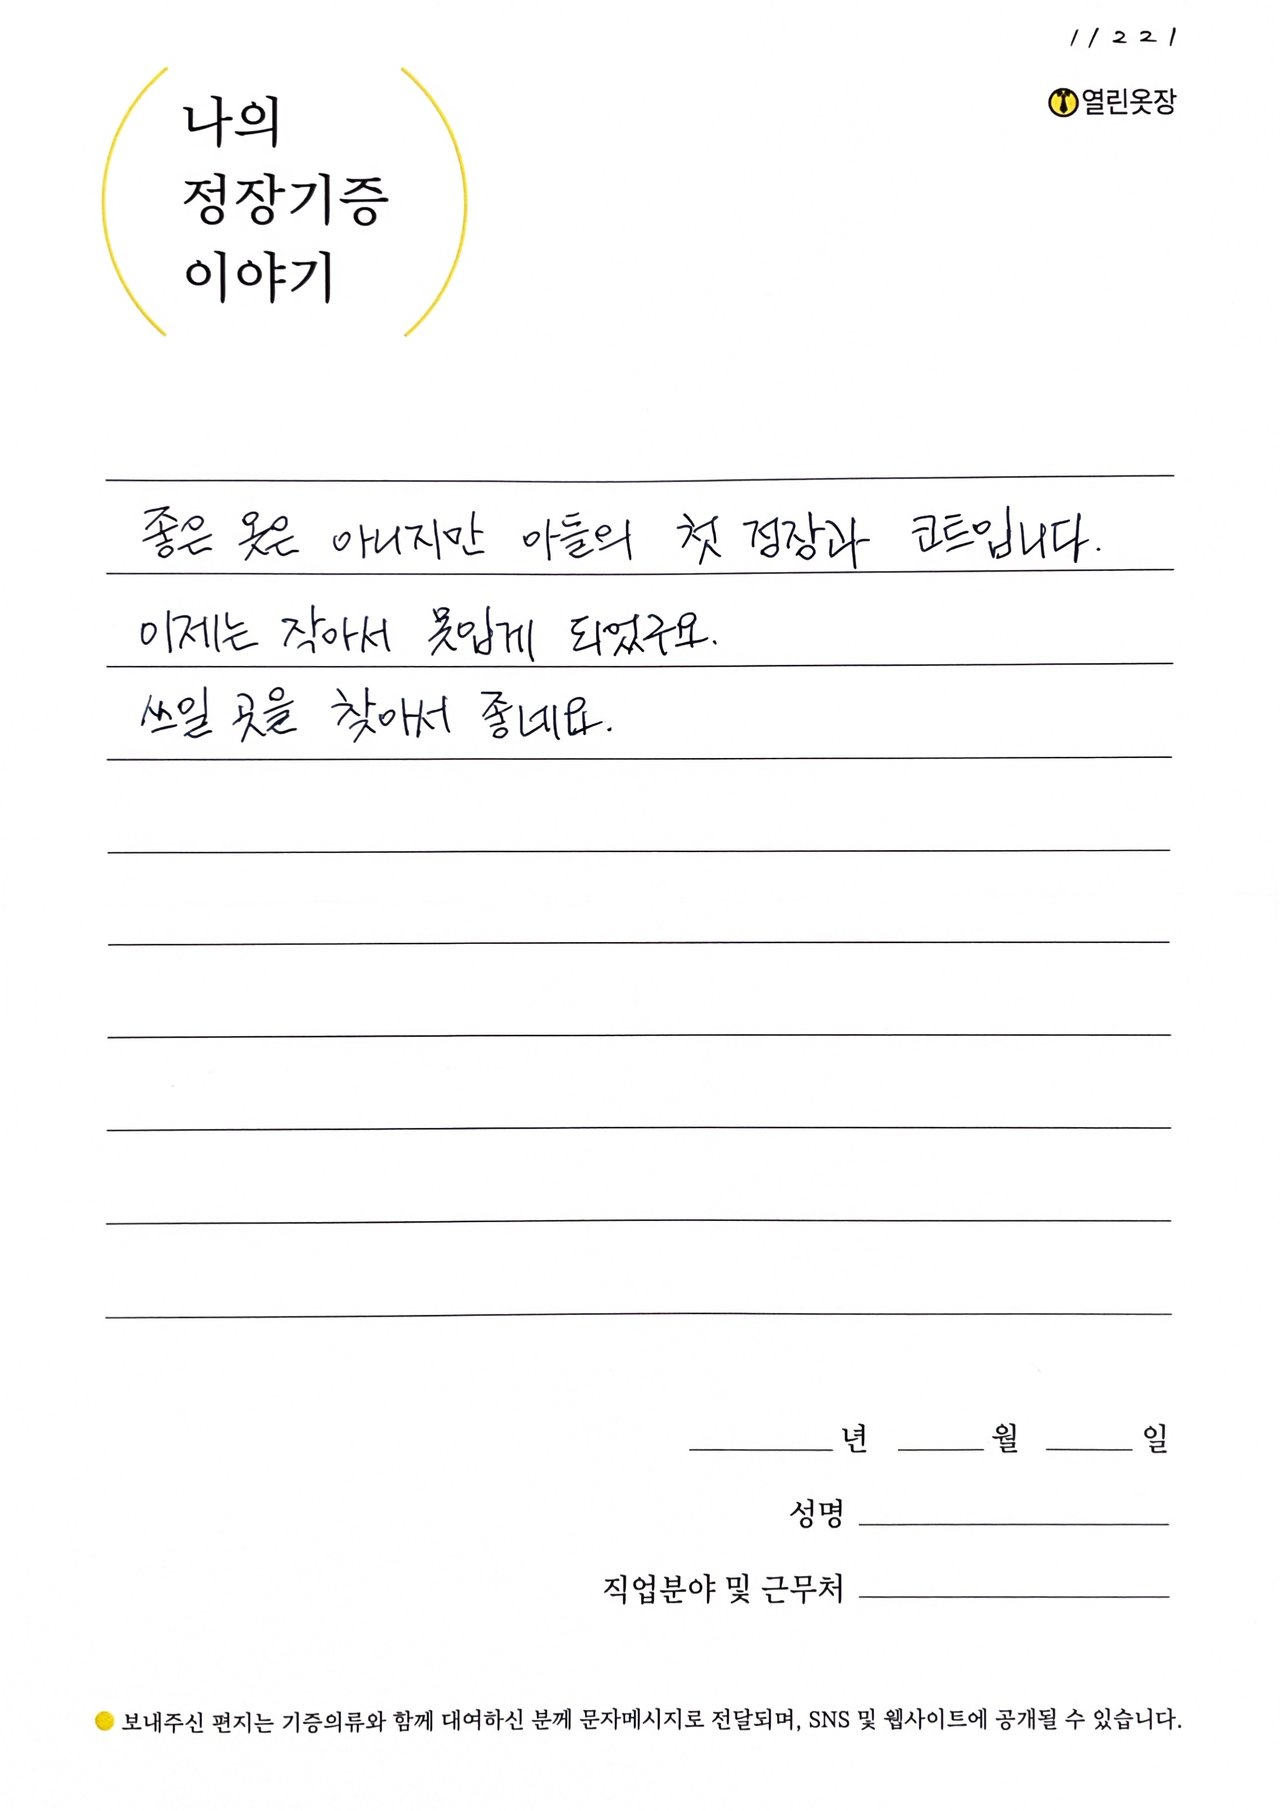 11221
열린옷장
나의
정장기증
이야기
좋은 옷은 아니지만 아들의 첫 정장과 코트입니다.
이제는 작아서 못입게 되었구요.
쓰일 곳을 찾아서 좋네요.
년 월 일
성명
직업분야 및 근무처
보내주신 편지는 기증의류와 함께 대여하신 분께 문자메시지로 전달되며, SNS 및 웹사이트에 공개될 수 있습니다.